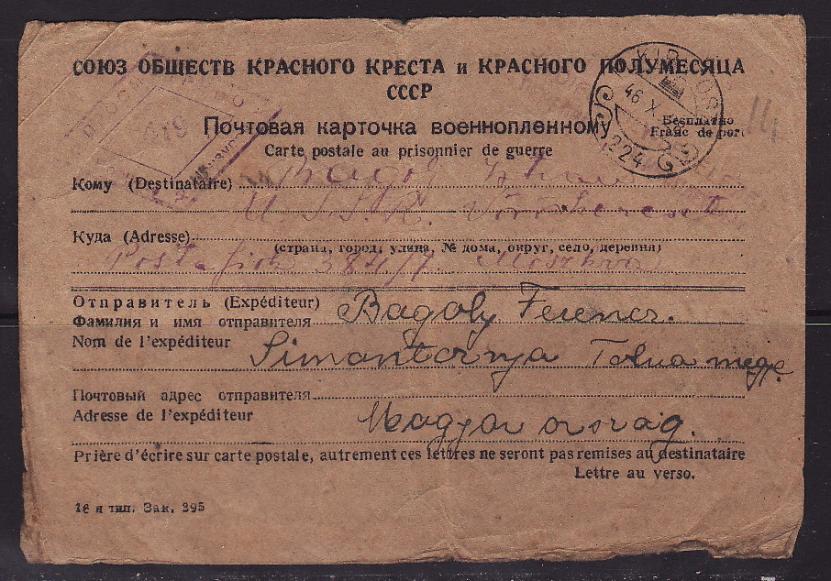 СОЮЗ ОБЩЕСТВ КРАСНОГО КРЕСТА и КРАСНОГО ПОЛУМЕСЯЦА
СССР
46 X
224
Бесплатно
Franc de port
Почтовая карточка военнопленному
Carte postale au prisonnier de guerre
Кому (Destinataire)
U.S.S.R.
Куда (Adresse)
(страна, город, улица, № дома, округ, село, деревня)
Отправитель (Expéditeur)
Фамилия и имя отправителя Bagoly Ferencz.
Nom de l'expéditeur Simontornya Tolna megye
Почтовый адрес отправителя
Adresse de l'expéditeur Magyarország.
Prière d'écrire sur carte postale, autrement ces lettres ne seront pas remises au destinataire
Lettre au verso.
16 я тип. Зак. 395